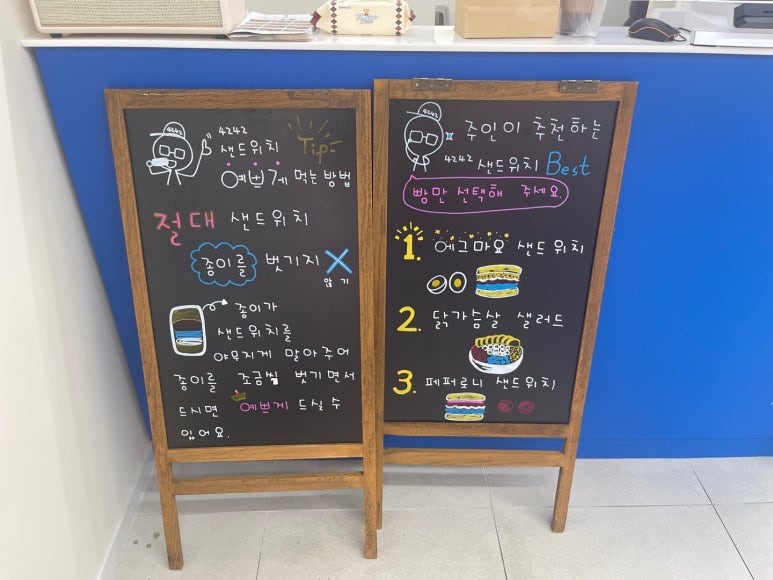 4242
4242
샌드위치 Tip
예쁘게 먹는 방법
절대 샌드위치
종이를 벗기지
않기
종이가
샌드위치를
야무지게 말아주어
종이를 조금씩 벗기면서
드시면 예쁘게 드실 수
있어요.
4242
주인이 추천하는
4242 샌드위치 Best
빵만 선택해 주세요.
1. 에그마요 샌드위치
2. 닭가슴살 샐러드
3. 페퍼로니 샌드위치